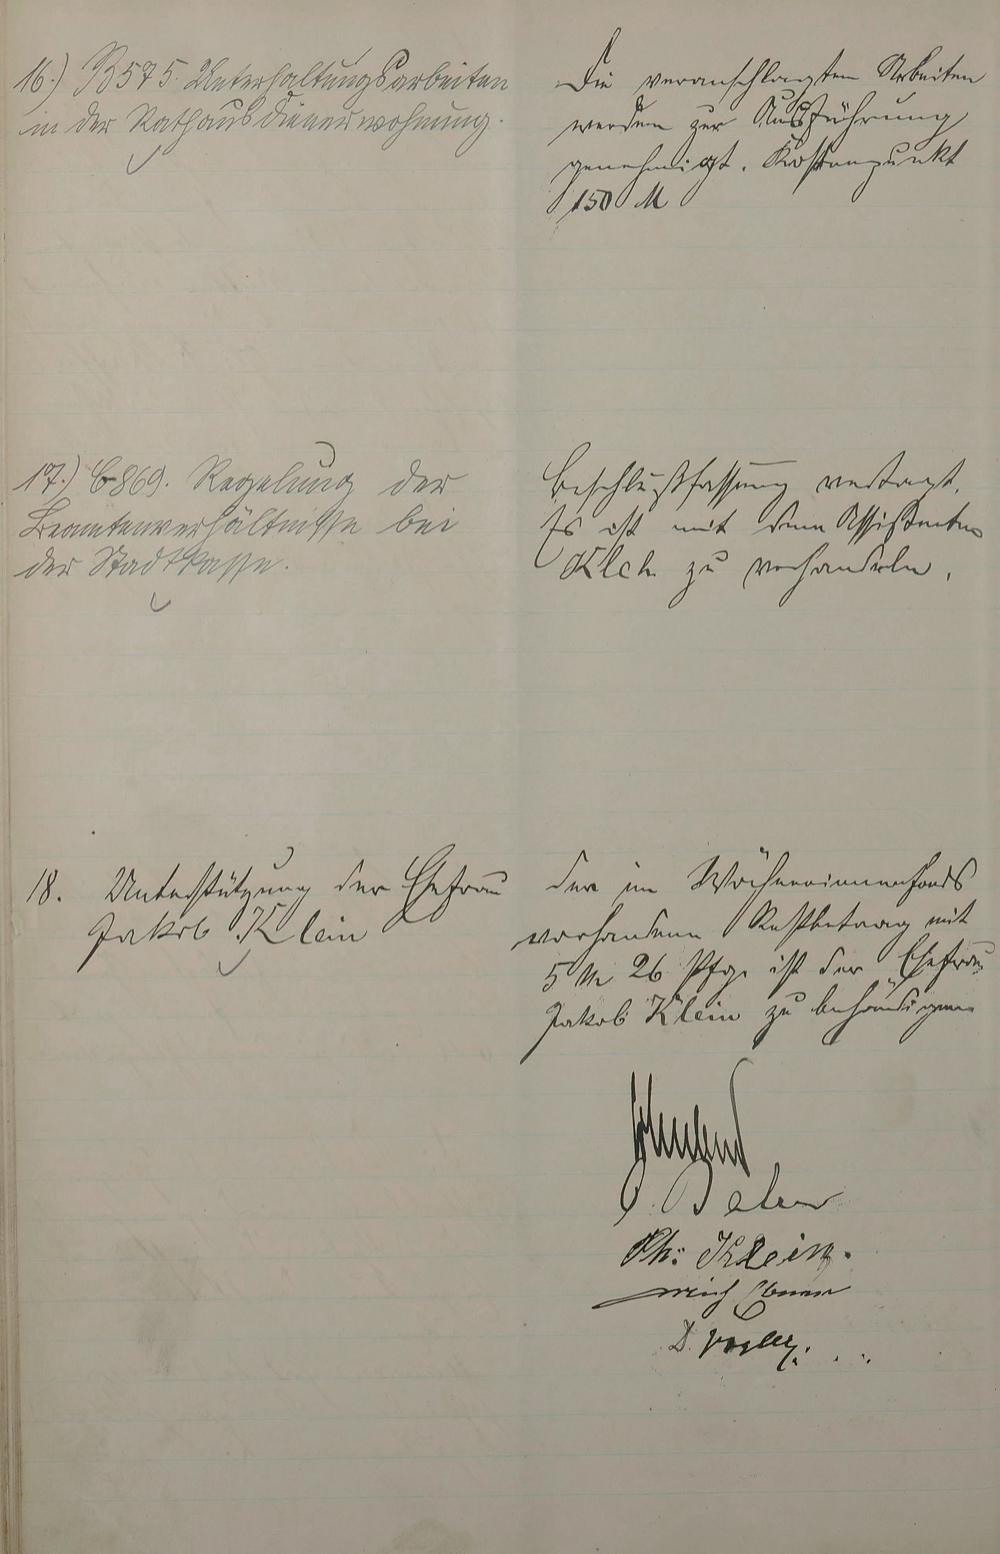 16.) B575. Unterhaltungsarbeiten
in der Rathausdienerwohnung.
Die veranschlagten Arbeiten
werden zur Ausführung
genehmigt. Kostenpunkt
150 M
17.) C869. Regelung der
Beamtenverhältnisse bei
der Stadtkasse.
Beschlußfassung vertagt.
Es ist mit dem Assistenten
zu verhandeln.
18. Unterstützung der Ehefrau
Jakob Klein
Der im Wöchnerinnenfonds
vorhandene Restbetrag mit
5 M 26 Pfg. ist der Ehefrau
Jakob Klein zu behändigen
Ph: Klein.
D. Vogler.